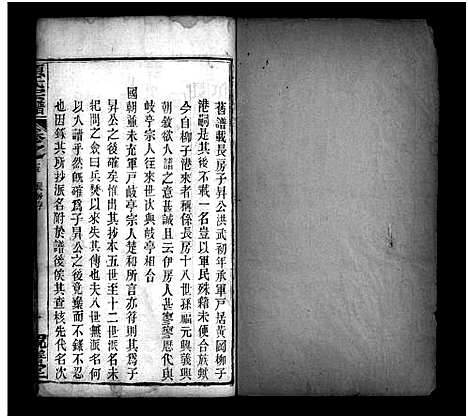 舊譜載長房子昇公洪武初年承軍戶居黃岡柳子
港嗣是其後不載一名豈以軍民殊籍未便合族歟
今自柳子港來者稱係長房十八世孫
朝敘欲入譜之意甚誠且云伊房人甚寥寥歷代與
岐亭宗人往來世次與岐亭相合
國朝並未充軍戶岐亭宗人楚和所言亦符則其為子
昇公之後確矣惟出其抄本五世至十二世派名未
祀問之僉曰兵燹以來失其傳也夫八世無派名何
以入譜乎然既確為子昇公之後竟棄而不錄不忍
也因錄其所抄派名附於譜後俟其查核先代名次